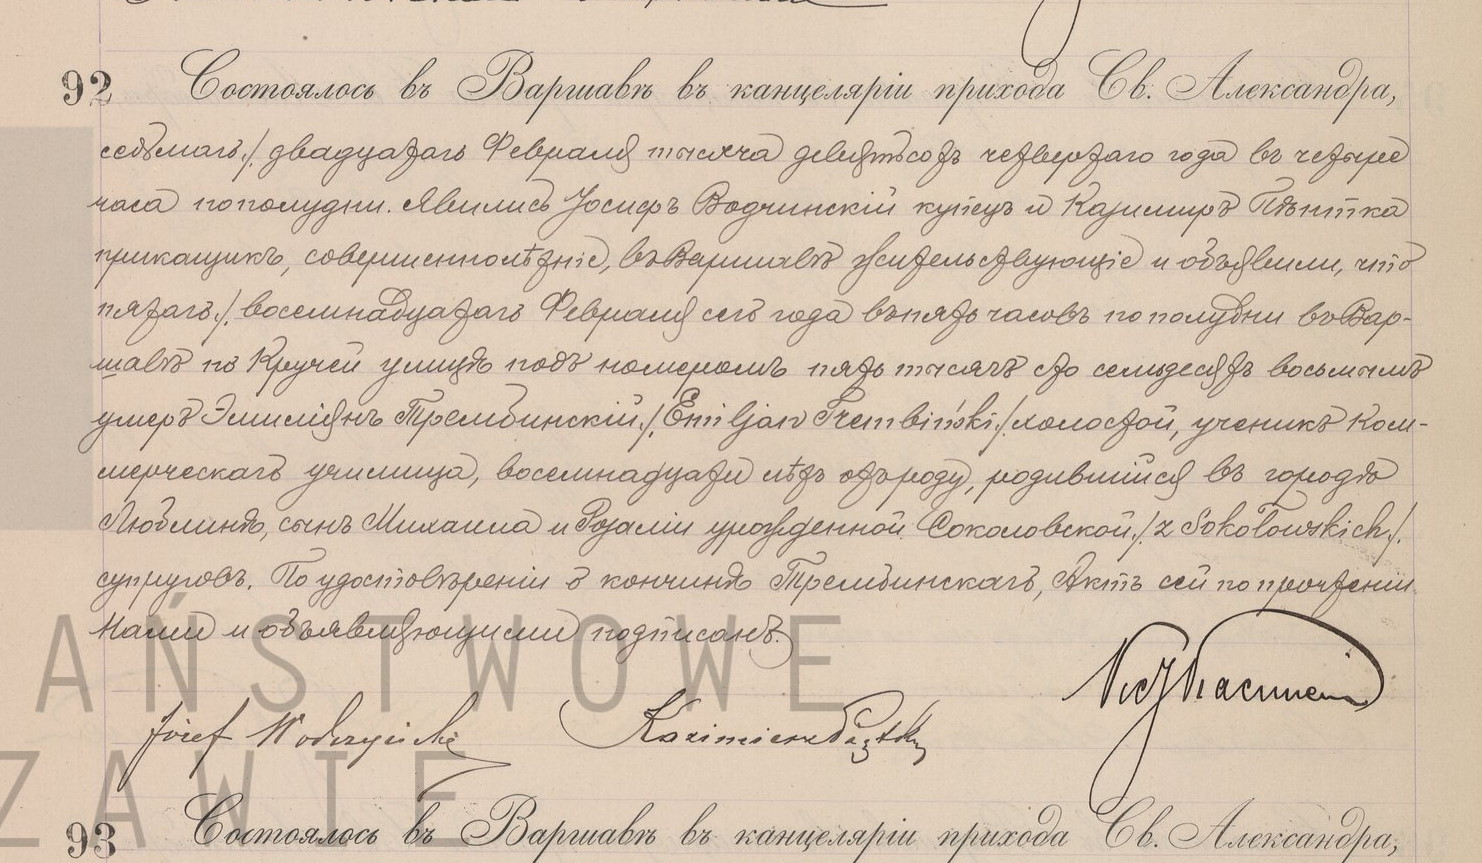 92 Состоялось въ Варшавѣ въ канцеляріи прихода Св. Александра,
седьмаго /. двадцатаго Февраля тысяча девятьсотъ четвертаго года въ четыре
часа пополудни. Явились Іосифъ Водчинскій купецъ и Казимиръ Пѣнтка
прикащикъ, совершеннолѣтніе, въ Варшавѣ жительствующіе и объявили, что
пятаго /. восемнадцатаго Февраля сего года въ пять часовъ пополудни въ Вар-
шавѣ по Кручей улицѣ подъ номеромъ пять тысячъ сто семьдесятъ восьмымъ
умеръ Эмиліянъ Трембинскій /. Emiljan Trembiński ./ холостой, ученикъ Ком-
мерческаго училища, восемнадцати лѣтъ отъ роду, родившійся въ городѣ
Люблинѣ, сынъ Михаила и Розаліи урожденной Соколовской /. z Sokołowskich /.
супруговъ. По удостовѣреніи о кончинѣ Трембинскаго, Актъ сей по прочтеніи
Нами и объявляющими подписанъ.
Józef Wodczyński Kazimierz Piętka
AŃSTWOWE
ZAWIE
93 Состоялось въ Варшавѣ въ канцеляріи прихода Св. Александра,